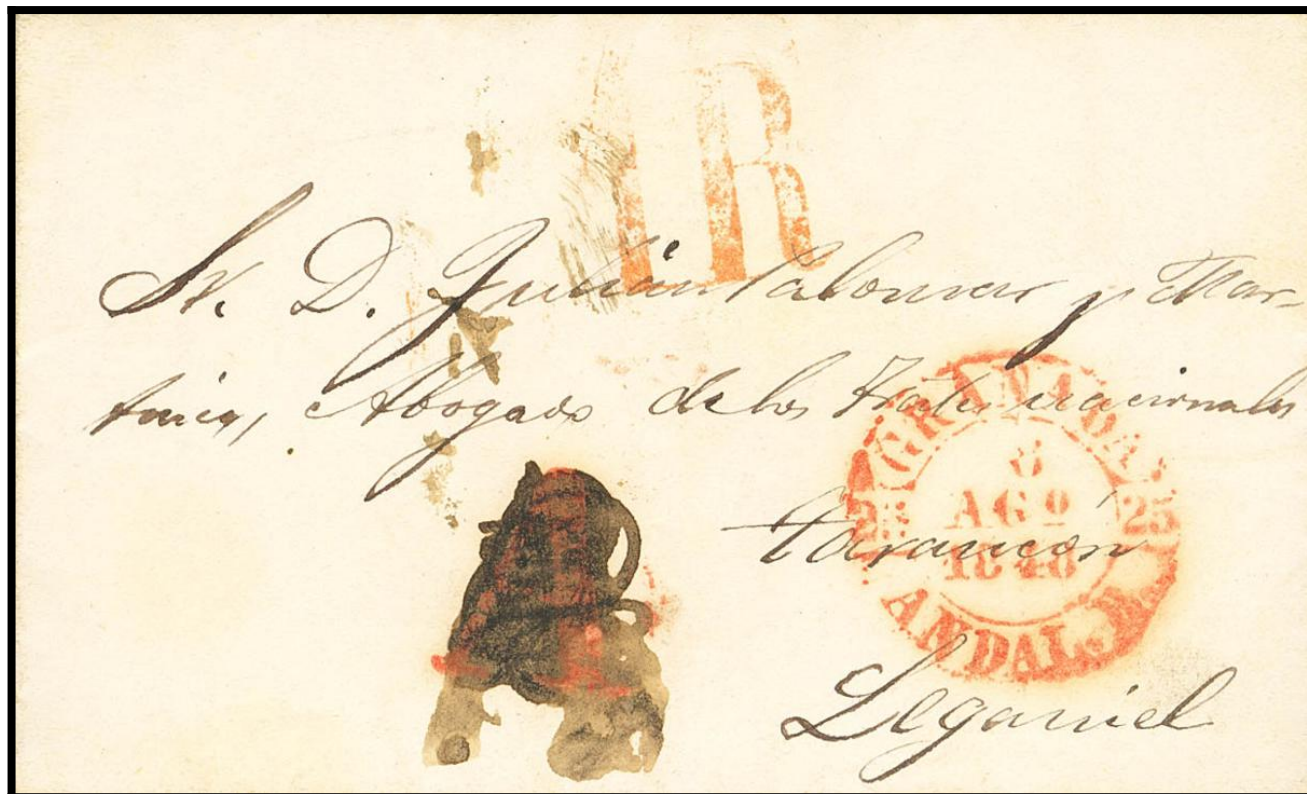 1R
Sr. D. Julián Palomar y Mar-
tinez, Abogado de los nacionales
GRANADA
25 8 25
AGO
1848
ANDAL. B.
Tarancón
Leganiel